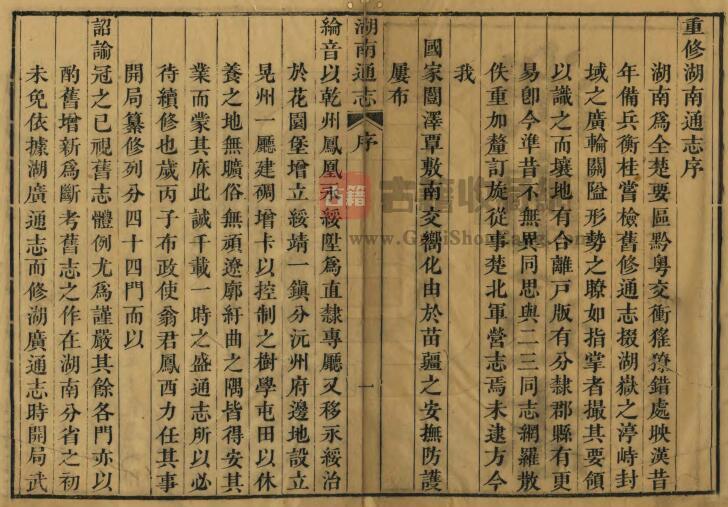 重修湖南通志序
湖南爲全楚要區黔粤交衝猺獠錯處映漢昔
年備兵衡桂嘗檢舊修通志掇湖嶽之渟峙封
域之廣輪關隘形勢之瞭如指掌者撮其要領
以識之而壤地有合離戸版有分隸郡縣有更
易卽今準昔不無異同思與二三同志網羅散
佚重加釐訂旋從事楚北軍營志焉未逮方今
我
國家闓澤覃敷南交嚮化由於苗疆之安撫防護
屢布
湖南通志 序 一
綸音以乾州鳳凰永綏陞爲直隸專廳又移永綏治
於花園堡增立綏靖一鎮分沅州府邊地設立
晃州一廳建碉增卡以控制之樹學屯田以休
養之地無曠俗無頑遼廓紆曲之隅皆得安其
業而蒙其庥此誠千載一時之盛通志所以必
待續修也歲丙子布政使翁君鳳西力任其事
開局纂修列分四十四門而以
詔諭冠之已視舊志體例尤爲謹嚴其餘各門亦以
酌舊增新爲斷考舊志之作在湖南分省之初
未免依據湖廣通志而修湖廣通志時開局武
古籍
www.GujiShouCang.com